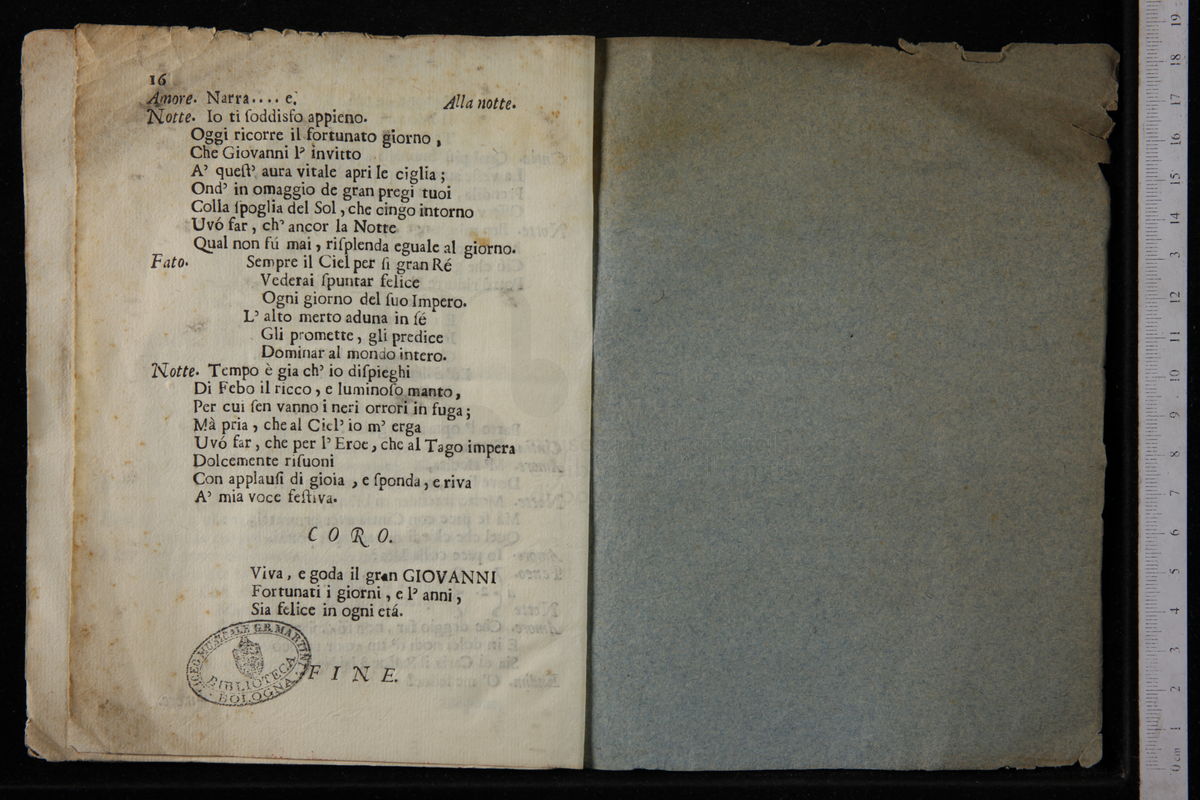 16
Amore. Narra.... e. Alla notte.
Notte. Io ti ſoddisfo appieno.
Oggi ricorre il fortunato giorno ,
Che Giovanni l' invitto
A' queſt' aura vitale apri le ciglia ;
Ond' in omaggio de gran pregi tuoi
Colla ſpoglia del Sol , che cingo intorno
Uvó far , ch' ancor la Notte
Qual non fú mai , riſplenda eguale al giorno.
Fato. Sempre il Ciel per ſi gran Ré
Vederai ſpuntar felice
Ogni giorno del ſuo Impero.
L' alto merto aduna in ſé
Gli promette , gli predice
Dominar al mondo intero.
Notte. Tempo è gia ch' io diſpieghi
Di Febo il ricco , e luminoſo manto ,
Per cui ſen vanno i neri orrori in fuga ;
Mà pria , che al Ciel' io m' erga
Uvó far , che per l' Eroe , che al Tago impera
Dolcemente riſuoni
Con applauſi di gioia , e ſponda , e riva
A' mia voce feſtiva.
CORO.
Viva , e goda il gran GIOVANNI
Fortunati i giorni , e l' anni ,
Sia felice in ogni etá.
LICEO MUSICALE G.B. MARTINI
BIBLIOTECA
BOLOGNA
FINE.
0 cm 1 2 3 4 5 6 7 8 9 10 11 12 13 14 15 16 17 18 19